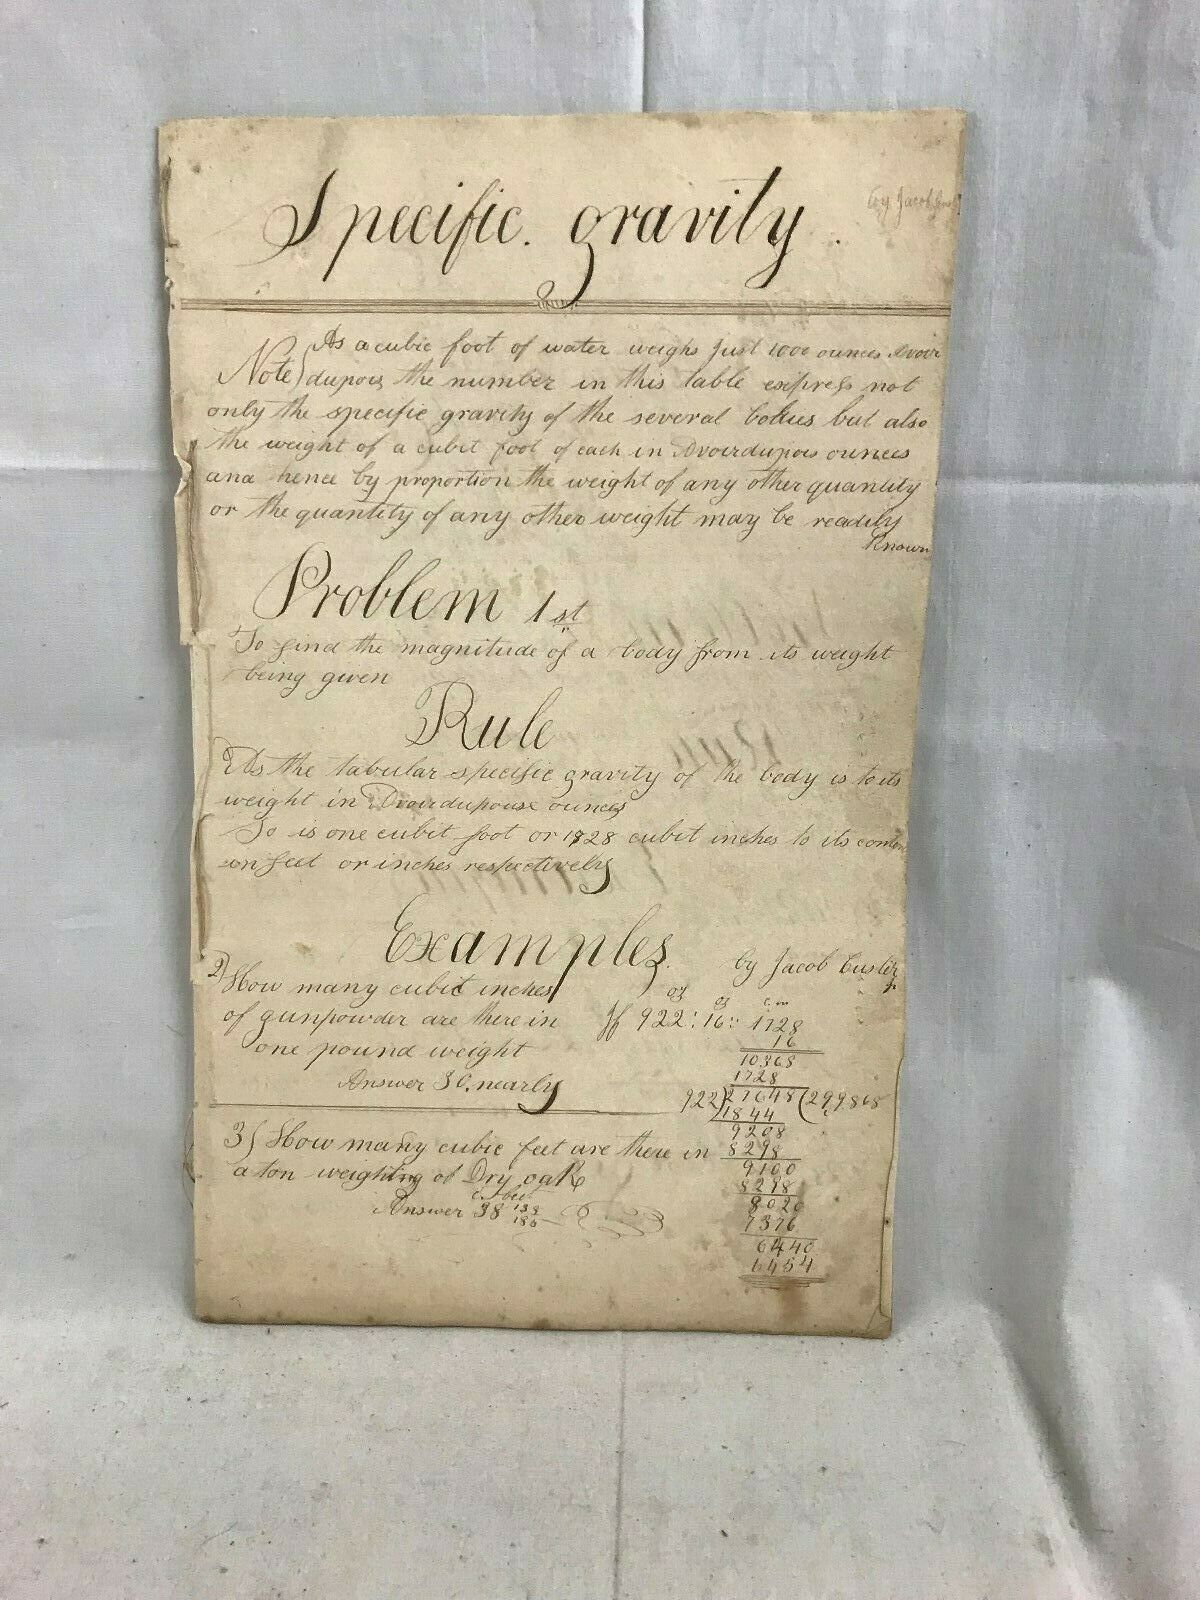 Specific. gravity.
by Jacob
Note} As a cubic foot of water weighs just 1000 ounces Avoir
dupois the number in this table express not
only the specific gravity of the several but also
the weight of a cubit foot of each in Avoirdupois ounces
and hence by proportion the weight of any other quantity
or the quantity of any other weight may be readily
Known
Problem 1st
To find the magnitude of a body from its weight
being given
Rule
As the tabular specific gravity of the body is to its
weight in Avoirdupouse ounces
So is one cubit foot or 1728 cubit inches to its
in feet or inches respectively
Examples.
by Jacob Custer
2) How many cubit inches
of gunpowder are there in
one pound weight
Answer 30, nearly
oz oz c. in
If 922 : 16 :: 1728
16
10368
1728
922)27648(299868
1844
9208
8298
9100
8298
8020
7376
6440
3) How many cubic feet are there in
a ton weighting of Dry oak
Answer 38 138
185